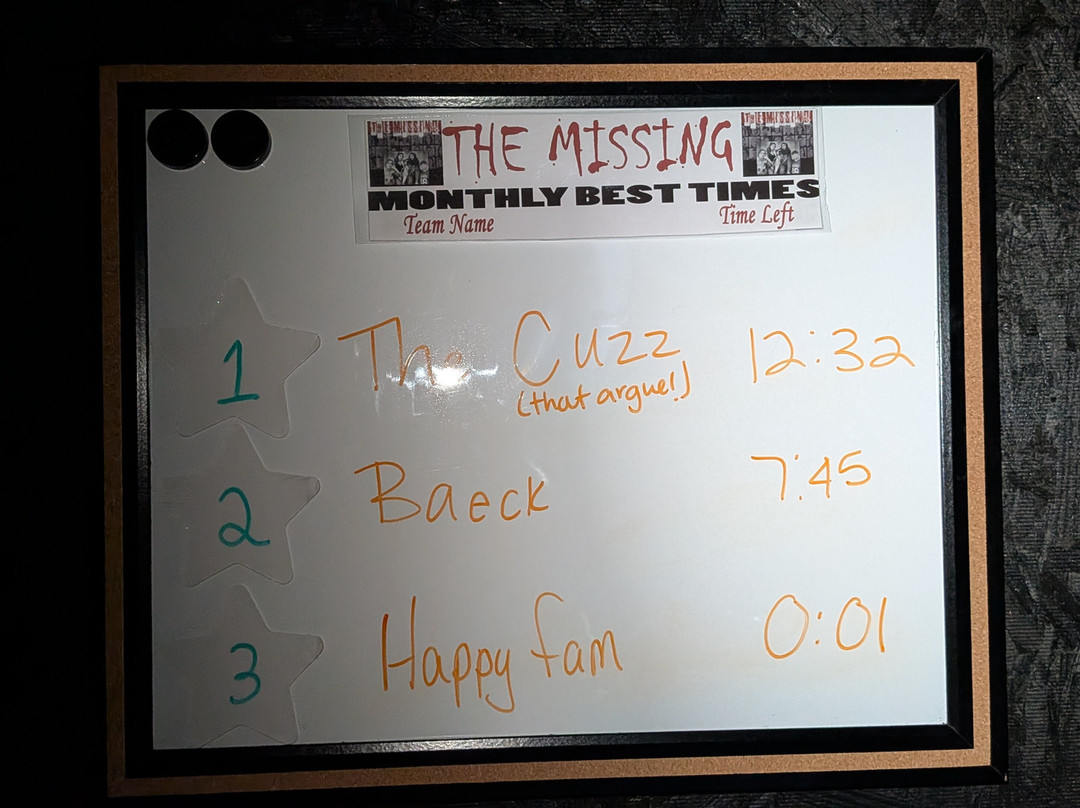 THE MISSING
MONTHLY BEST TIMES
Team Name Time Left
1 The Cuzz 12:32
(that argue!)
2 Baeck 7:45
3 Happy fam 0:01